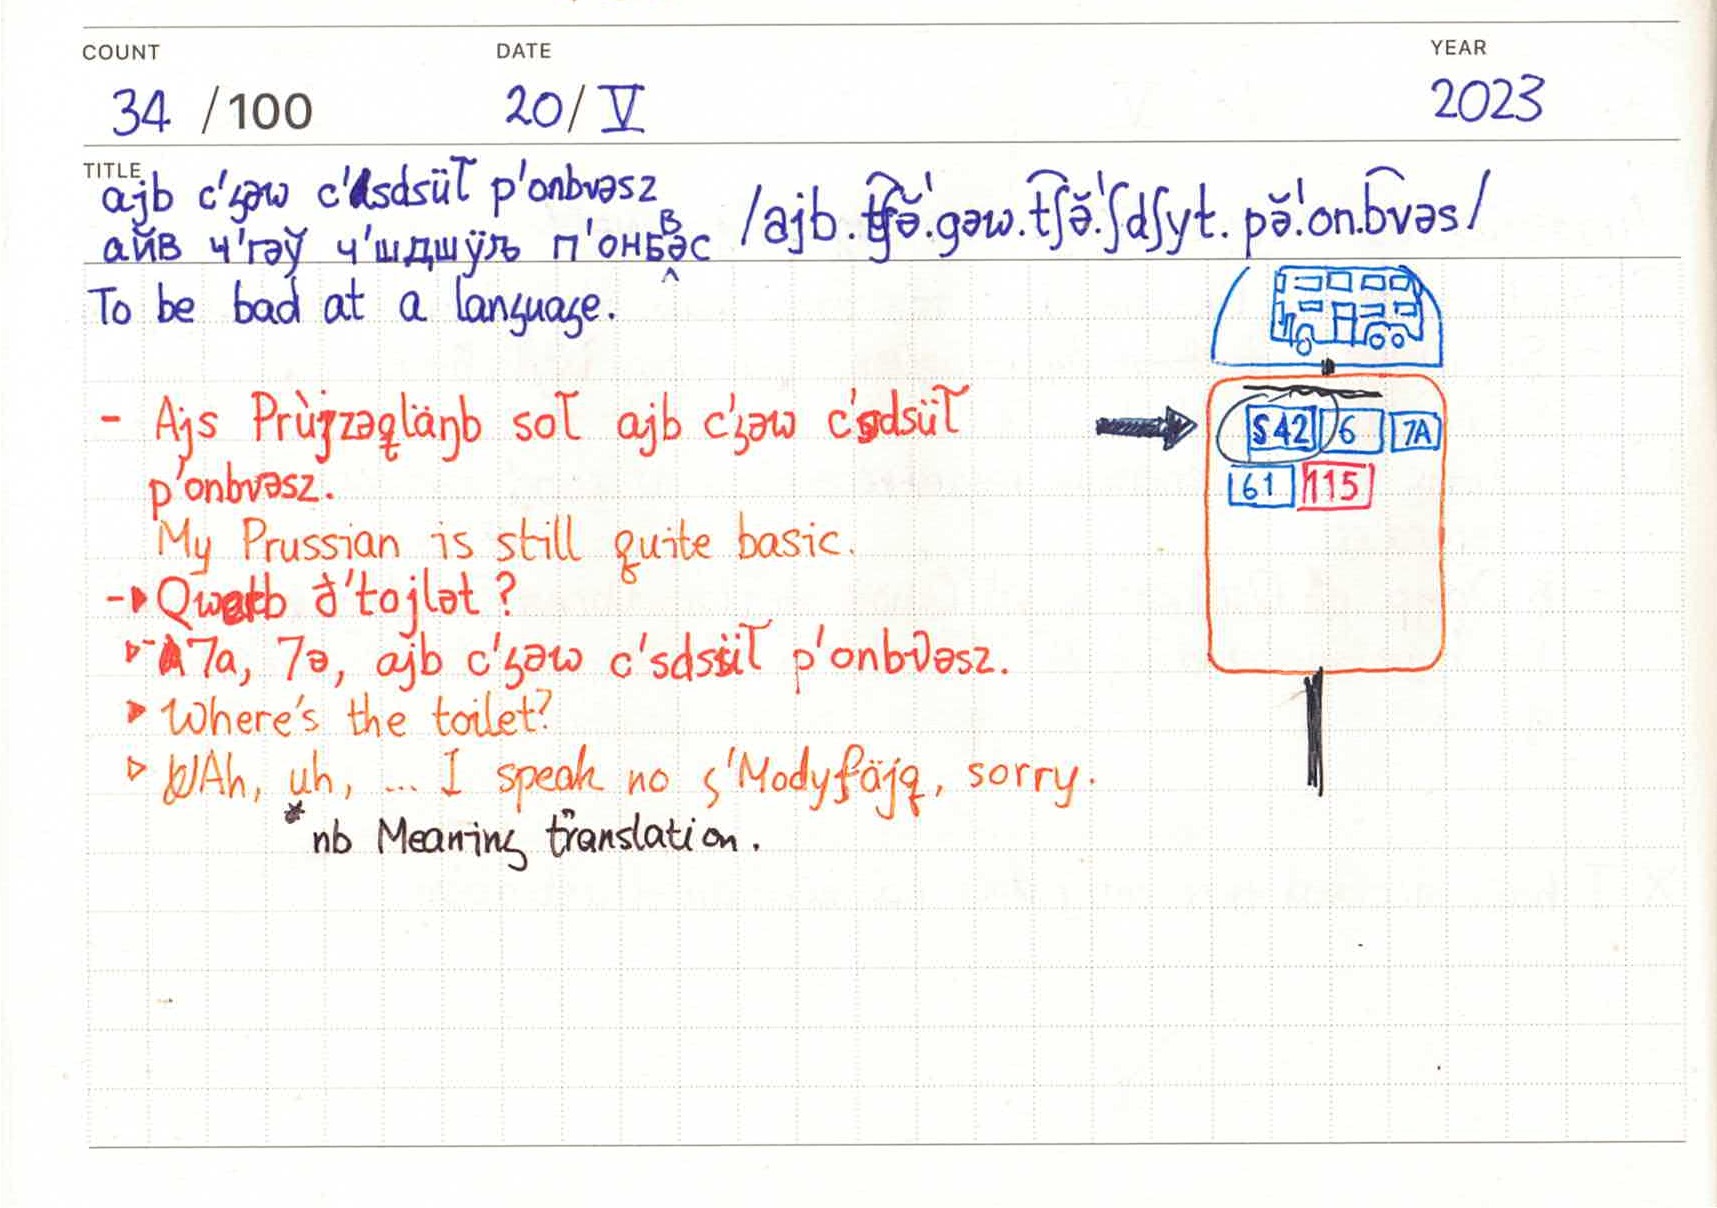 COUNT DATE YEAR
34 /100 20/V 2023
TITLE
ajb c'ʒəw c'sdsüt p'onbvəsz
айв ч'гəў ч'шдшÿљ п'онбвəс /ajb.t͡ʃə̆'.gəw.t͡ʃə̆.'ʃdʃyt.pə̆.'on.b͡vəs/
To be bad at a language.
- Ajs Prùjzəqläŋb sot ajb c'ʒəw c'sdsüt
p'onbvəsz.
My Prussian is still quite basic.
Qwətb ð'tojlət?
7a, 7ə, ajb c'ʒəw c'sdsüt p'onbvəsz.
Where's the toilet?
Ah, uh, ... I speak no ʒ'Modyfäjq, sorry.
*nb Meaning translation.
S42 6 7A
61 115